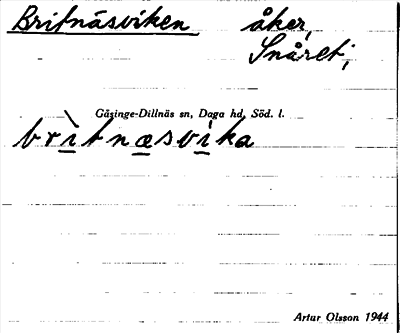 Britnäsviken åker,
Snåret;
Gåsinge-Dillnäs sn, Daga hd, Söd. l.
brìtnæsvika
Artur Olsson 1944